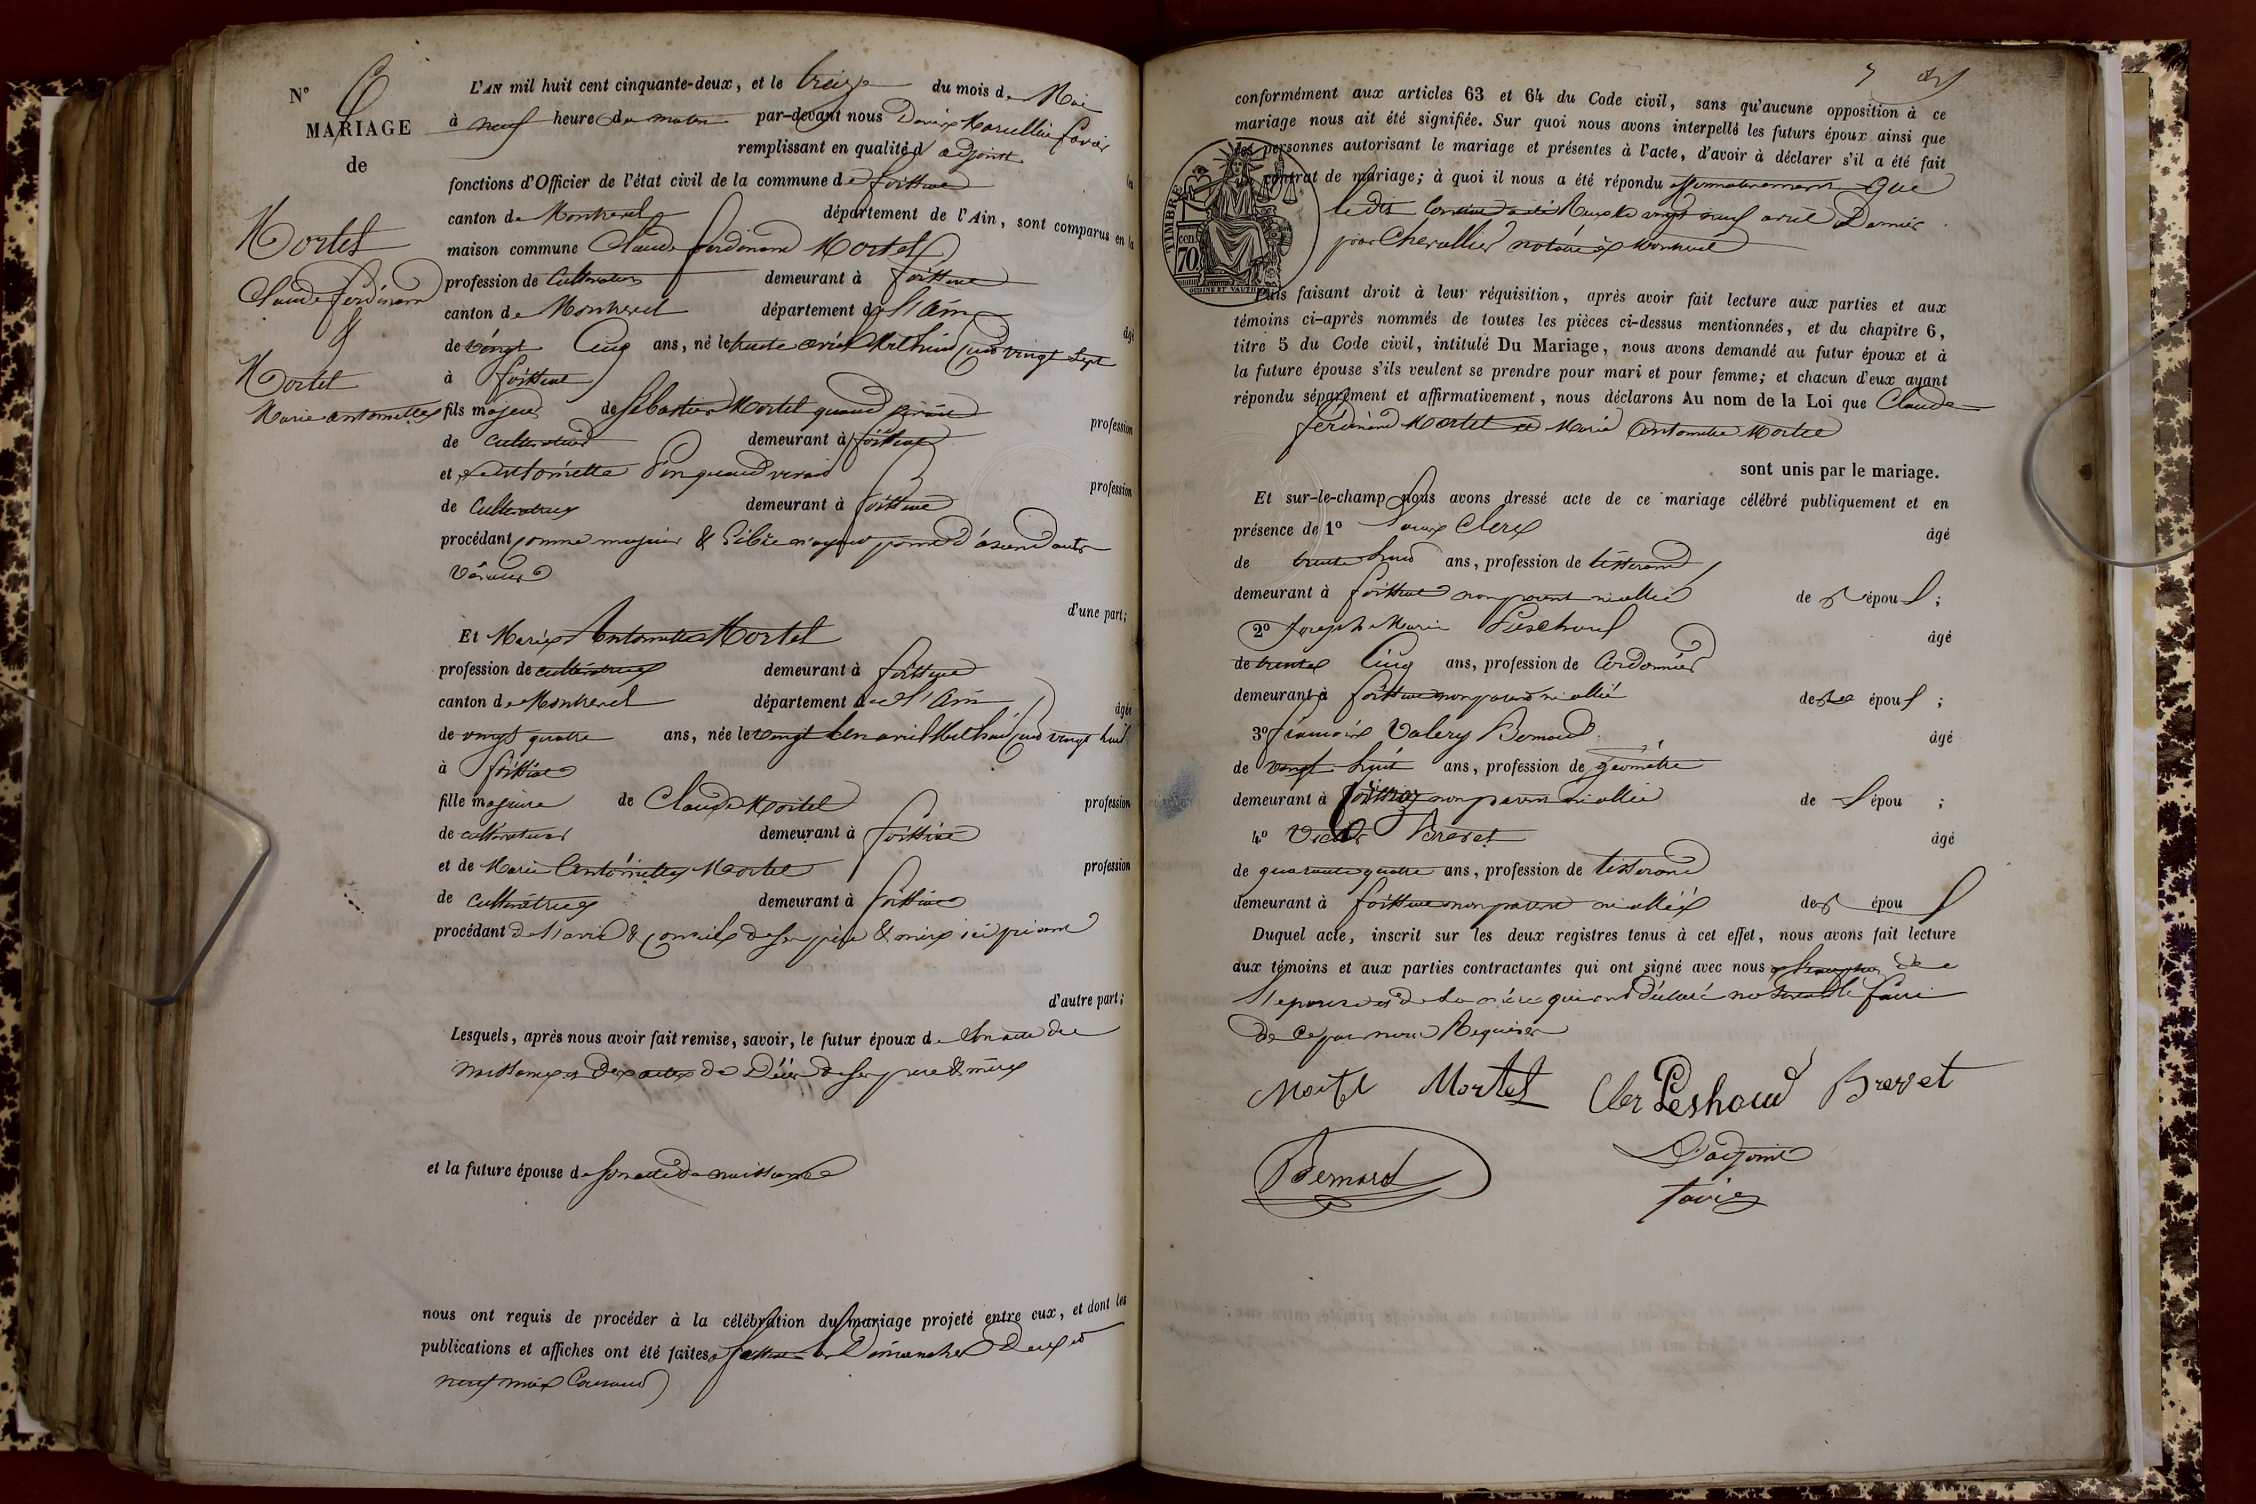 N° 6
MARIAGE
de
Mortel
Claude ferdinand
&
Mortel
Marie antoinette
L'AN mil huit cent cinquante-deux, et le treize du mois de Mai
à neuf heure du matin par-devant nous Denis Marcellin favier
remplissant en qualité d'adjoint les
fonctions d'Officier de l'état civil de la commune de foissiat
canton de Montrevel département de l'Ain, sont comparus en la
maison commune Claude ferdinand Mortel
profession de Cultivateur demeurant à foissiat
canton de Montrevel département de l'Ain âgé
de vingt Cinq ans, né le trente avril Mil huit Cent vingt Sept
à foissiat
fils majeur de Sébastien Mortel quand vivait profession
de Cultivateur demeurant à foissiat
et d'antoinette quand vivait profession
de Cultivatrice demeurant à foissiat
procédant comme majeur & libre n'ayant point d'ascendants
vivants
d'une part;
Et Marie Antoinette Mortel
profession de cultivatrice demeurant à foissiat
canton de Montrevel département de l'Ain âgée
de vingt quatre ans, née le vingt avril Mil huit Cent vingt huit
à foissiat
fille majeure de Claude Mortel profession
de cultivateur demeurant à foissiat
et de Marie Antoinette Mortel profession
de cultivatrice demeurant à foissiat
procédant de l'avis & conseils de ses père & mère ici présent
d'autre part;
Lesquels, après nous avoir fait remise, savoir, le futur époux de Son acte de
naissance et des actes de Décès de ses père & mère
et la future épouse de son acte de naissance
nous ont requis de procéder à la célébration du mariage projeté entre eux, et dont les
publications et affiches ont été faites à foissiat les Dimanches Deux et
neuf mai Courant
7
conformément aux articles 63 et 64 du Code civil, sans qu'aucune opposition à ce
mariage nous ait été signifiée. Sur quoi nous avons interpellé les futurs époux ainsi que
les personnes autorisant le mariage et présentes à l'acte, d'avoir à déclarer s'il a été fait
contrat de mariage; à quoi il nous a été répondu affirmativement que
ledit Contrat a été Reçu le vingt neuf avril Dernier
par Chevallier notaire à Montrevel
TIMBRE
cen
70
Puis faisant droit à leur réquisition, après avoir fait lecture aux parties et aux
témoins ci-après nommés de toutes les pièces ci-dessus mentionnées, et du chapitre 6,
titre 5 du Code civil, intitulé Du Mariage, nous avons demandé au futur époux et à
la future épouse s'ils veulent se prendre pour mari et pour femme; et chacun d'eux ayant
répondu séparément et affirmativement, nous déclarons Au nom de la Loi que Claude
ferdinand Mortel et Marie Antoinette Mortel
sont unis par le mariage.
Et sur-le-champ nous avons dressé acte de ce mariage célébré publiquement et en
présence de 1° Clerc âgé
de trente huit ans, profession de tisserand
demeurant à foissiat non parent ni allié des épous;
2° Joseph Marie Peschoud âgé
de trente Cinq ans, profession de Cordonnier
demeurant à foissiat non parent ni allié des épous;
3° françois Valery Bernard âgé
de vingt huit ans, profession de géomètre
demeurant à foissiat non parent ni allié des épou;
4° Victor Brevet âgé
de quarante quatre ans, profession de tisserand
demeurant à foissiat non parent ni allié des épous
Duquel acte, inscrit sur les deux registres tenus à cet effet, nous avons fait lecture
aux témoins et aux parties contractantes qui ont signé avec nous à l'exception de
l'épouse et de la mère qui ont déclaré ne savoir le faire
de ce par nous Requises
Mortel Mortel Cler Peshoud Brevet
Bernard
L'adjoint
favier